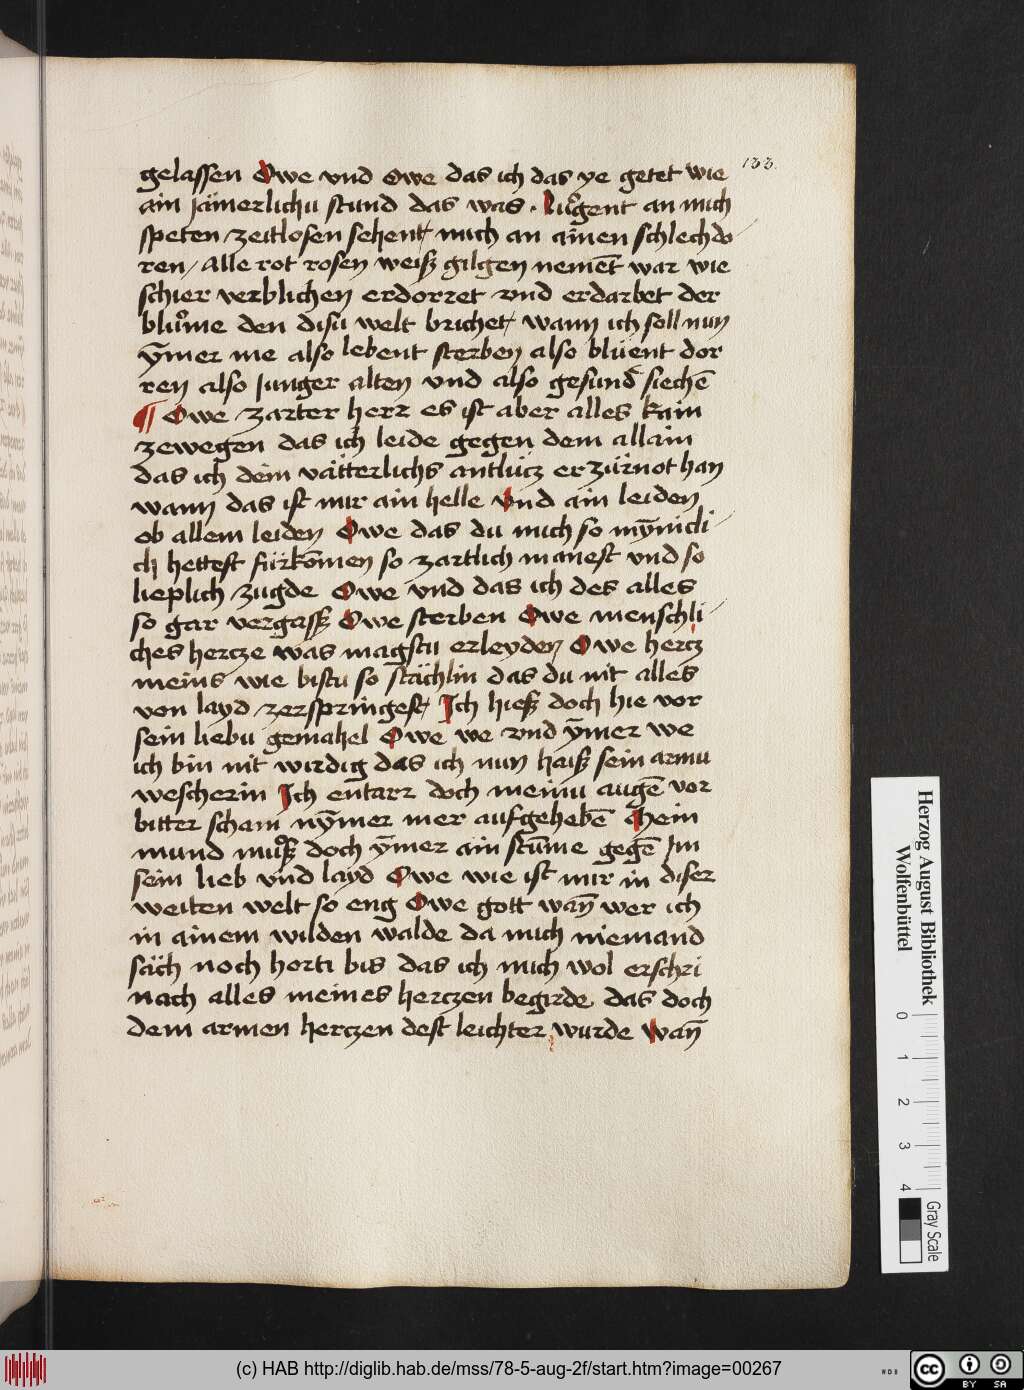 133.
gelassen Owe vnd owe das ich das ye getet wie
ain jämerlichu stund das was . Luͦgent an mich
speten / zeitlosen sehent / mich an ainen schlechdo
ren / Alle rot rosen weiß gilgen nemēt war wie
schier verblichen erdorret vnd erdarbet der
bluͦme den disu welt brichet / wann ich soll nun
ȳmer me also lebent sterben also blüent dor
ren also junger alten vnd also gesund siechē
¶ Owe zarter herr es ist aber alles kain
zewegen das ich leide gegen dem allain
das ich dein vätterlichs antlücz erzürnot han
wann das ist mir ain helle vnd ain leiden
ob allem leiden Owe das du mich so mȳnicli
ch hettest fürkōmen so zartlich manest vnd so
lieplich zugde Owe vnd das ich des alles
so gar vergasß Owe sterben Owe menschli
ches hercze was magstu erleyden Owe hercz
meins wie bistu so stächlin das du nit alles
von layd zerspringest / Ich hieß doch hie vor
sein liebu gemahel Owe we vnd ȳmer we
ich bin nit wirdig das ich nun haiß sein armu
wescherin Ich entarr doch meinu augē vor
bitter scham nȳmer mer aufgehebē Mein
mund muͦß doch ȳmer ain stūme gegē jm
sein lieb vnd layd Owe wie ist mir in diser
weiten welt so eng Owe gott wan̄ wer ich
in ainem wilden walde da mich niemand
säch noch horti bis das ich mich wol erschri
nach alles meines herczen begirde das doch
dem armen herczen dest leichter wurde Wan̄
Herzog August Bibliothek
Wolfenbüttel
0 1 2 3 4
Gray Scale
(c) HAB http://diglib.hab.de/mss/78-5-aug-2f/start.htm?image=00267
HAB
cc BY SA